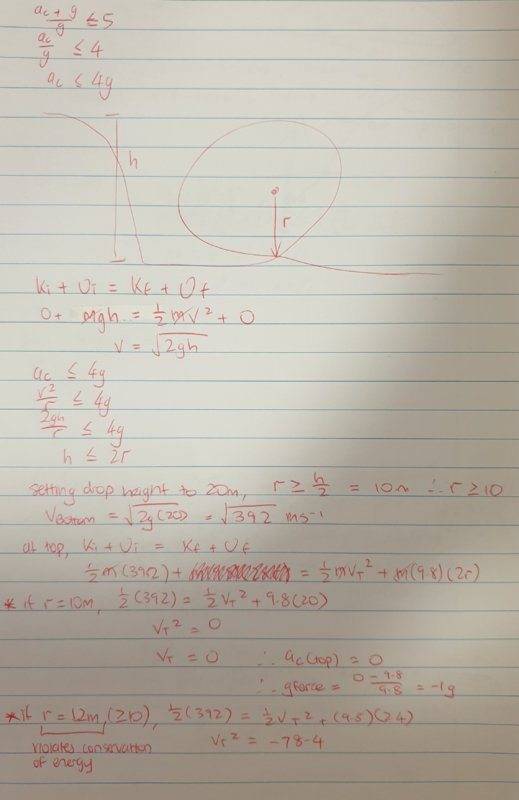 ac + g / g ≤ 5
ac / g ≤ 4
ac ≤ 4g
h
r
Ki + Ui = Kf + Uf
0 + mgh = ½mv² + 0
v = √2gh
ac ≤ 4g
v²/r ≤ 4g
2gh/r ≤ 4g
h ≤ 2r
setting drop height to 20m, r ≥ h/2 = 10m ∴ r ≥ 10
VBottom = √2g(20) = √392 ms⁻¹
at top, Ki + Ui = Kf + Uf
½m(392) + = ½mVT² + m(9.8)(2r)
* if r = 10m, ½(392) = ½VT² + 9.8(20)
VT² = 0
VT = 0 ∴ ac(top) = 0
∴ gforce = 0 - 9.8 / 9.8 = -1g
* if r = 12m, (≥10), ½(392) = ½VT² + (9.8)(24)
violates conservation VT² = -78.4
of energy